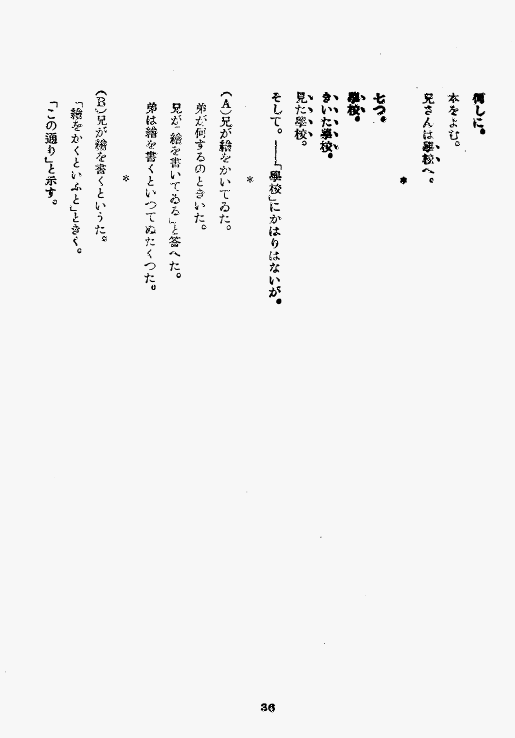 何しに。
本をよむ。
兄さんは學校へ。
*
七つ。
學校。
きいた學校。
見た學校。
そして。――「學校」にかはりはないが。
*
(A)兄が繪をかいてゐた。
弟が何するのときいた。
兄が「繪を書いてゐる」と答へた。
弟は繪を書くといつてぬたくつた。
*
(B)兄が繪を書くというた。
「繪をかくといふと」ときく。
「この通り」と示す。
36